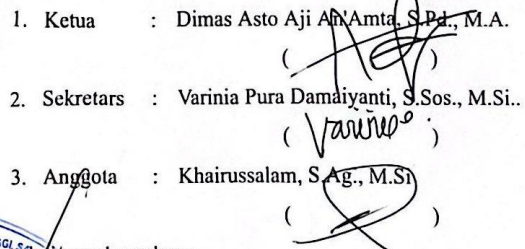 1. Ketua : Dimas Asto Aji An'Amta, S.Pd., M.A.
( )
2. Sekretars : Varinia Pura Damaiyanti, S.Sos., M.Si..
( )
3. Anggota : Khairussalam, S.Ag., M.Si
( )